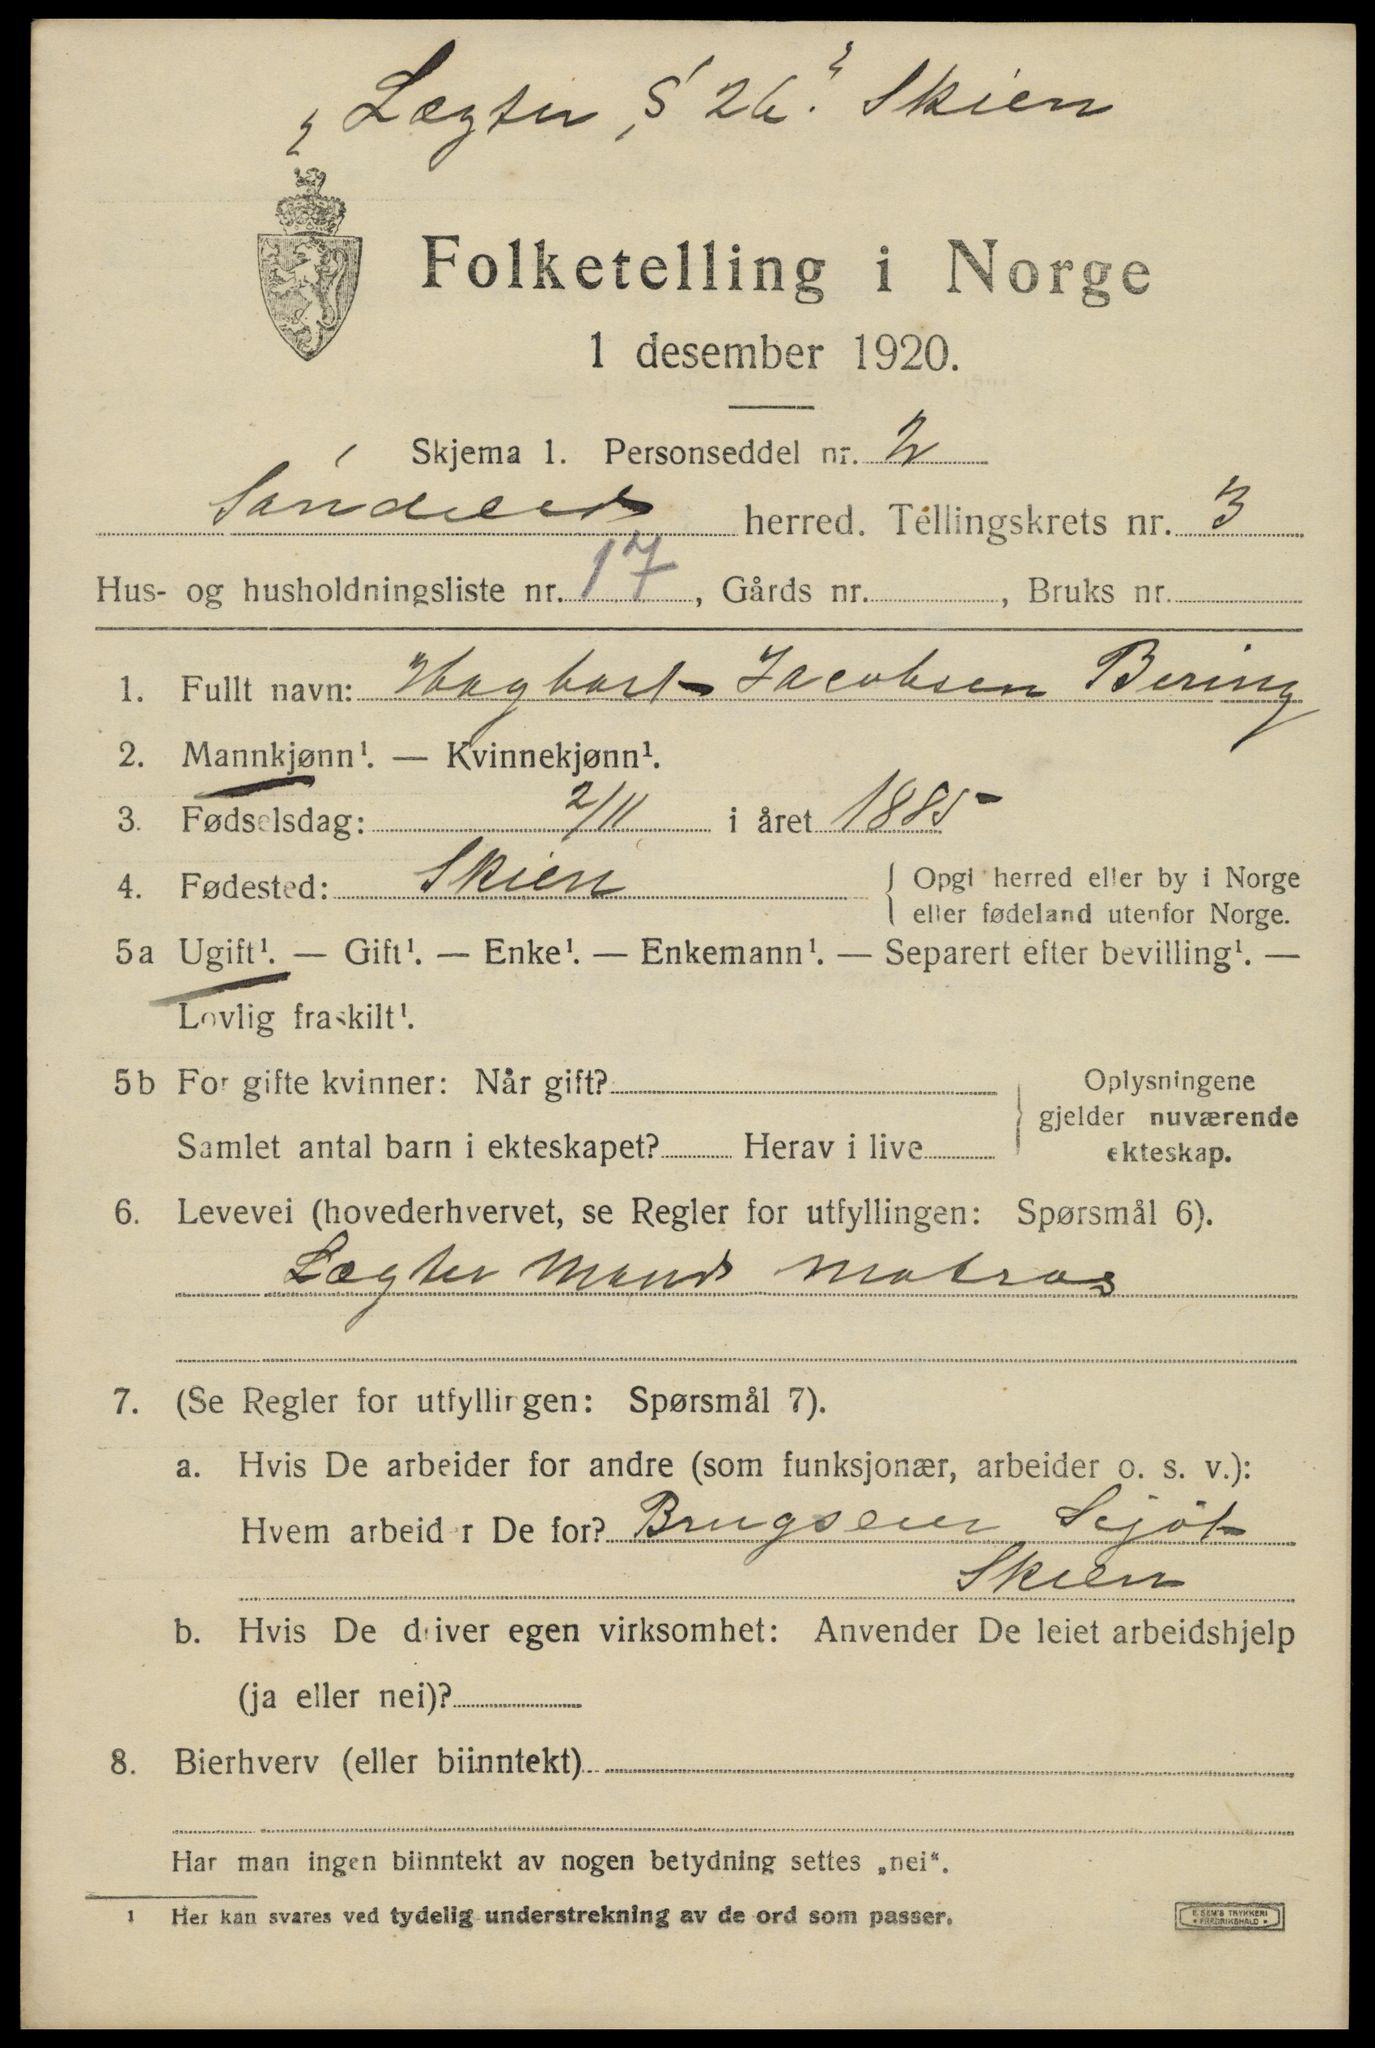 „Lægter S 26" Skien
Folketelling i Norge
1 desember 1920.
Skjema 1. Personseddel nr. 2
Sandeid herred. Tellingskrets nr. 3
Hus- og husholdningsliste nr. 17, Gårds nr. , Bruks nr.
1. Fullt navn: Hagbart Jacobsen Bering
2. Mannkjønn¹. — Kvinnekjønn¹.
3. Fødselsdag: 2/11 i året 1885
4. Fødested: Skien { Opgi herred eller by i Norge
eller fødeland utenfor Norge.
5a Ugift¹. — Gift¹. — Enke¹. — Enkemann¹. — Separert efter bevilling¹. —
Lovlig fraskilt¹.
5b For gifte kvinner: Når gift? } Oplysningene
gjelder nuværende
Samlet antal barn i ekteskapet? Herav i live ekteskap.
6. Levevei (hovederhvervet, se Regler for utfyllingen: Spørsmål 6).
Lægter Mand Matros
7. (Se Regler for utfyllingen: Spørsmål 7).
a. Hvis De arbeider for andre (som funksjonær, arbeider o. s. v.):
Hvem arbeider De for? Brugseier
Skien
b. Hvis De driver egen virksomhet: Anvender De leiet arbeidshjelp
(ja eller nei)?
8. Bierhverv (eller biinntekt)
Har man ingen biinntekt av nogen betydning settes „nei“.
¹ Her kan svares ved tydelig understrekning av de ord som passer.
E. SEM'S TRYKKERI
• FREDRIKSHALD •